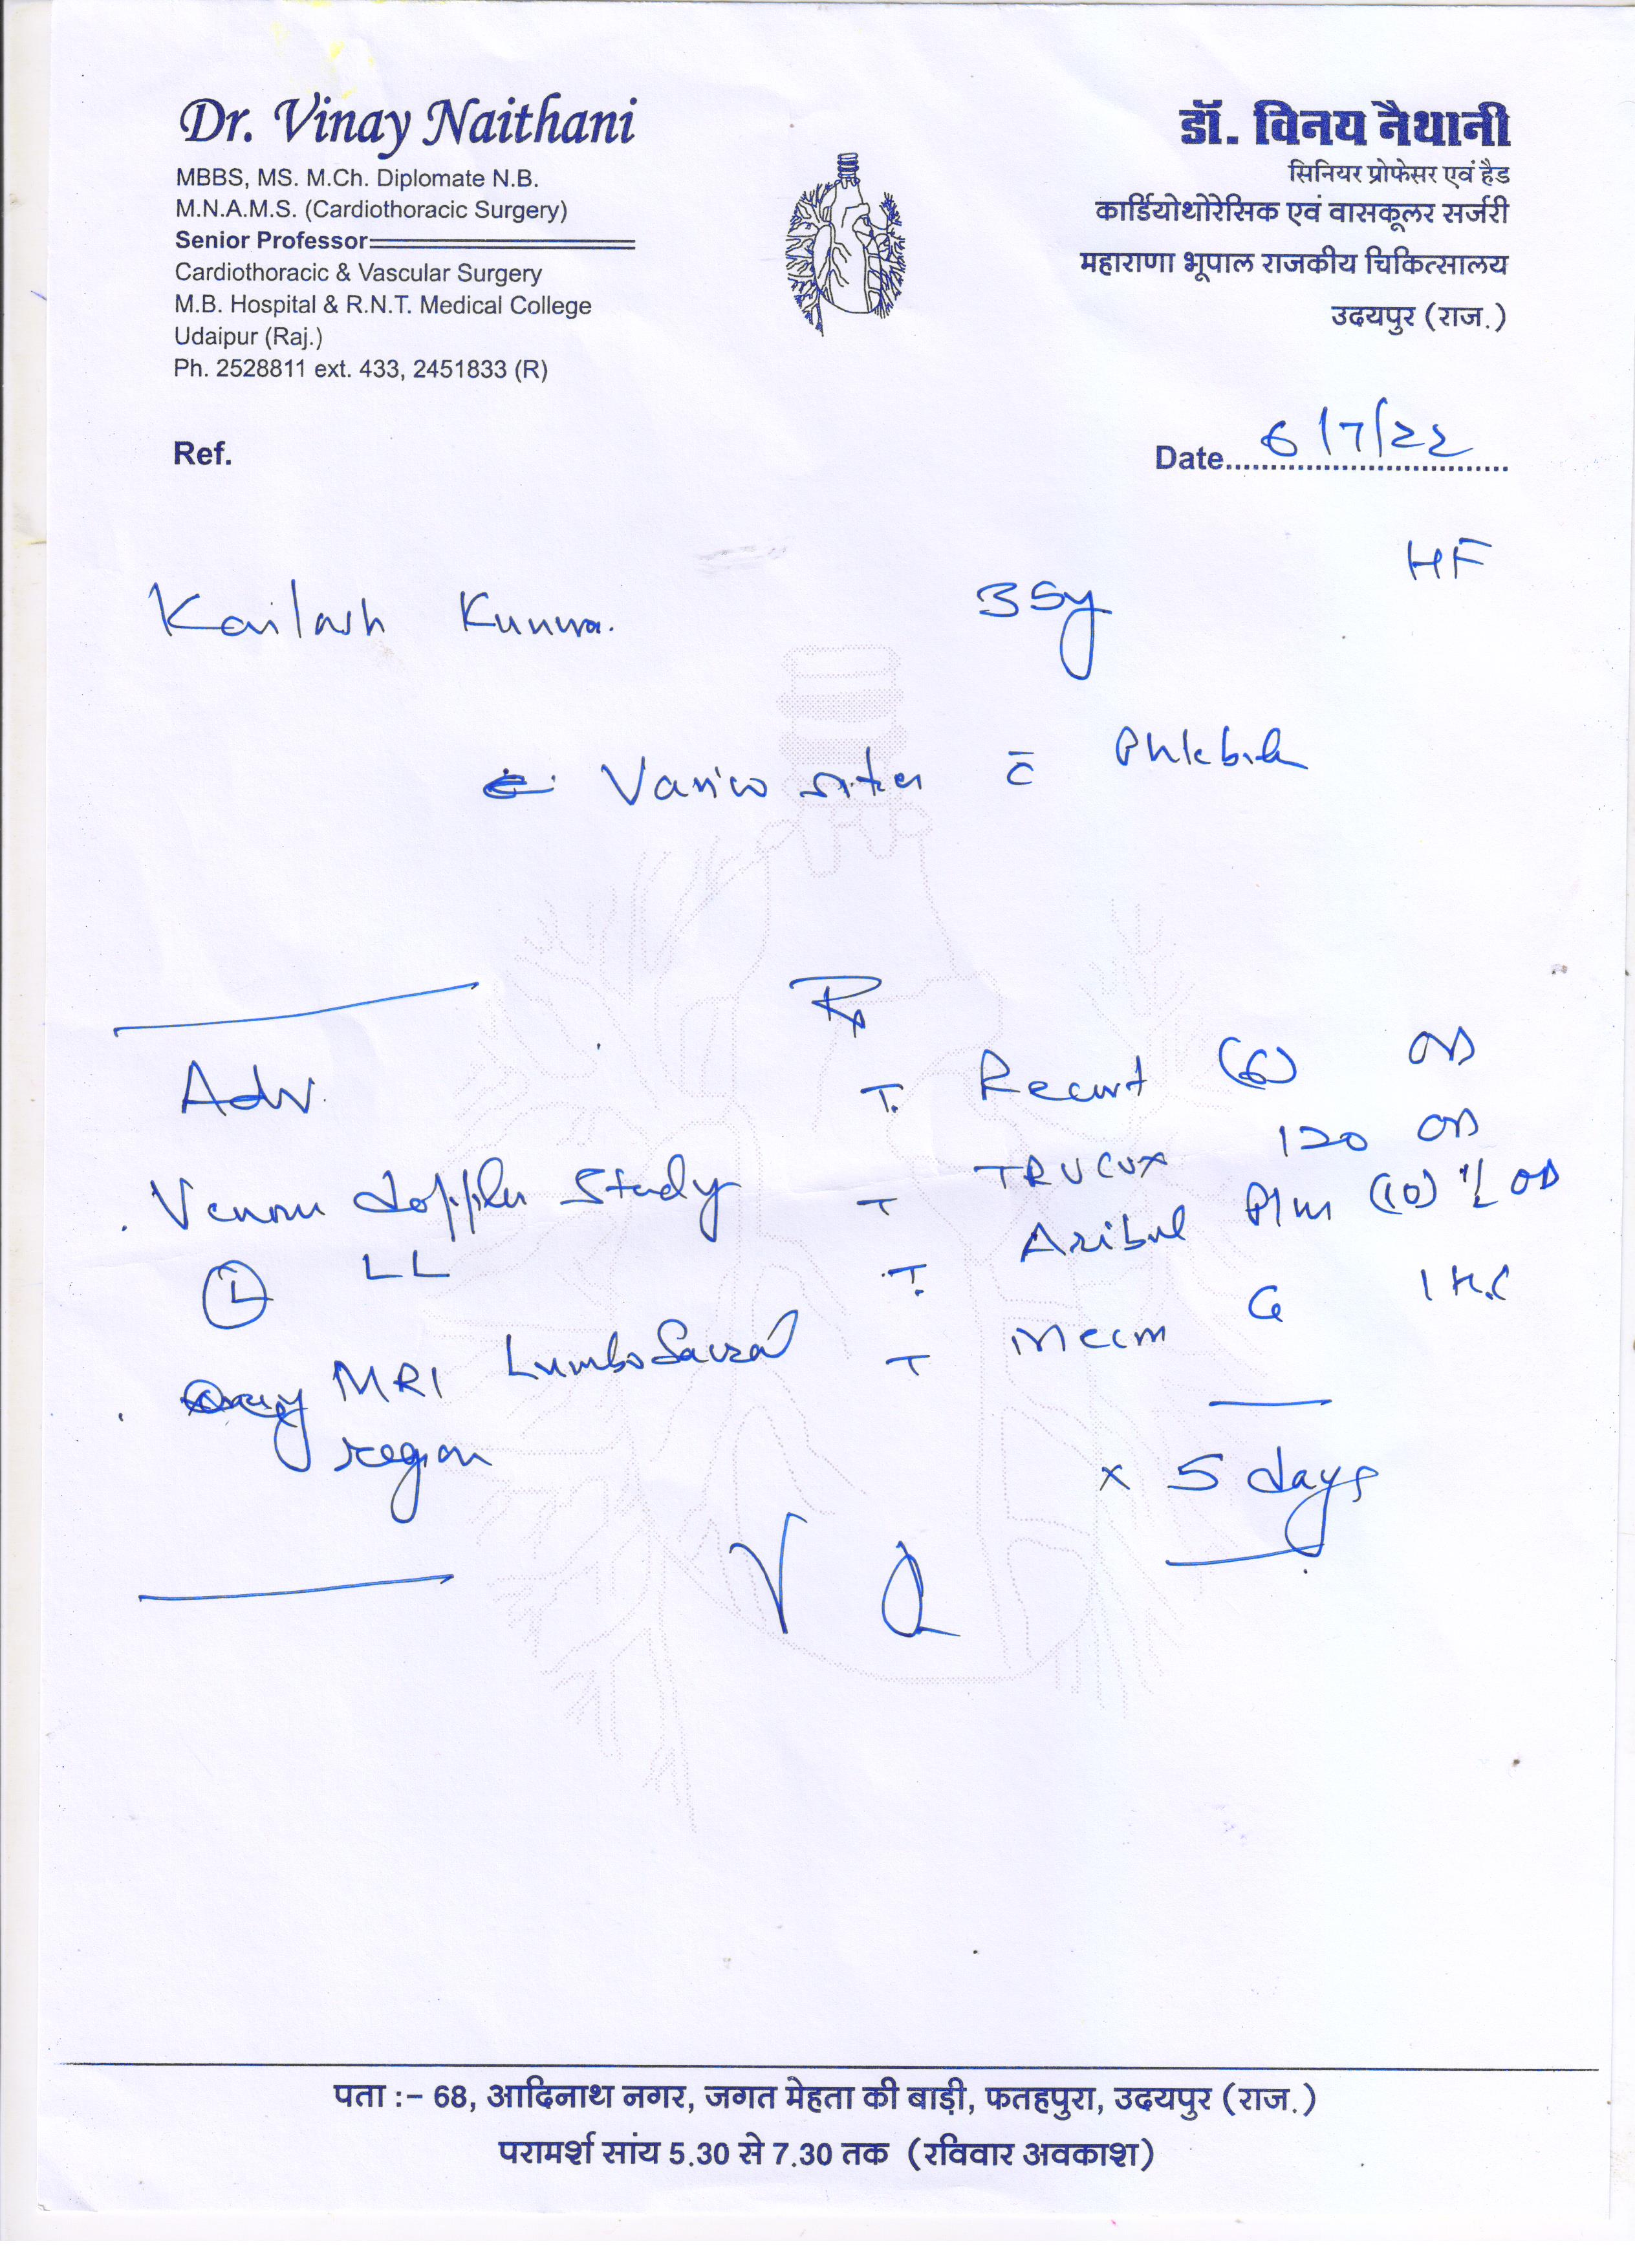 Dr. Vinay Naithani
MBBS, MS. M.Ch. Diplomate N.B.
M.N.A.M.S. (Cardiothoracic Surgery)
Senior Professor
Cardiothoracic & Vascular Surgery
M.B. Hospital & R.N.T. Medical College
Udaipur (Raj.)
Ph. 2528811 ext. 433, 2451833 (R)
डॉ. विनय नैथानी
सिनियर प्रोफेसर एवं हैड
कार्डियोथोरेसिक एवं वासकूलर सर्जरी
महाराणा भूपाल राजकीय चिकित्सालय
उदयपुर (राज.)
Ref.
Date 6/7/22
HF
Kailash 35y
c̄
Rx
Adv.
Venous doppler study
(L) LL
MRI LumboSacral
region
T. (6) OD
T 120 OD
T. Plus (10) OD
T
x 5 days
पता :- 68, आदिनाथ नगर, जगत मेहता की बाड़ी, फतहपुरा, उदयपुर (राज.)
परामर्श सांय 5.30 से 7.30 तक (रविवार अवकाश)